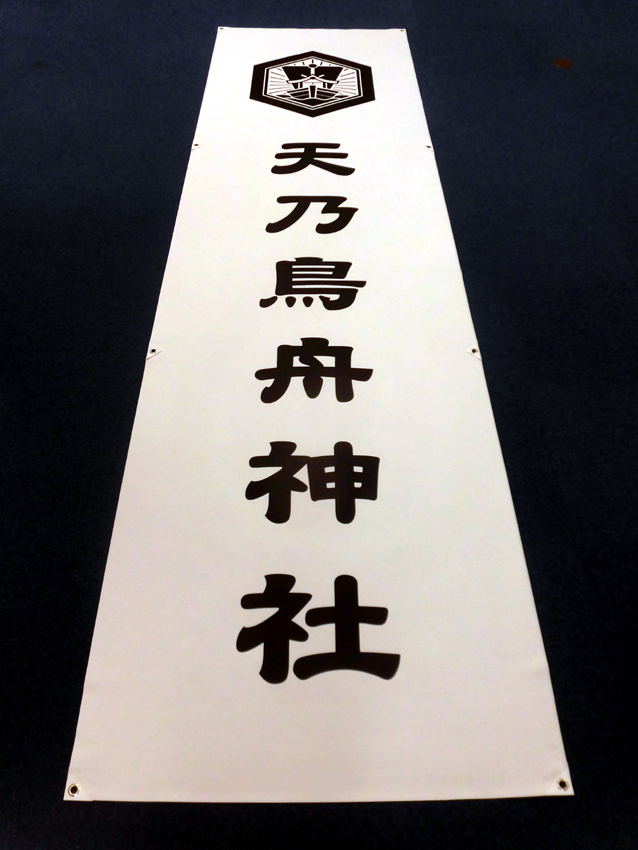 天乃鳥舟神社